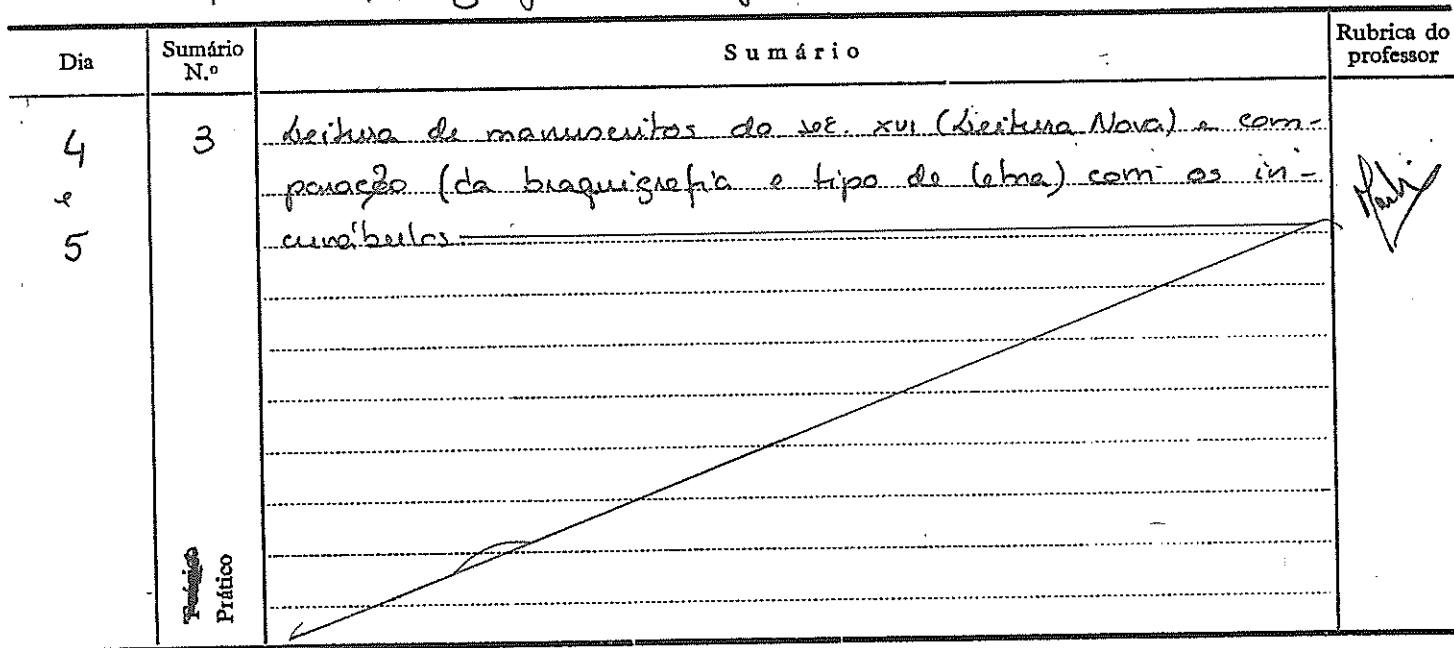 Dia
Sumário N.º
Sumário
Rubrica do professor
4 e 5
3
Leitura de manuscritos do séc. XVI (Leitura Nova) e com-
paração (da braquigrafia e tipo de letra) com os in-
cunábulos
Prático